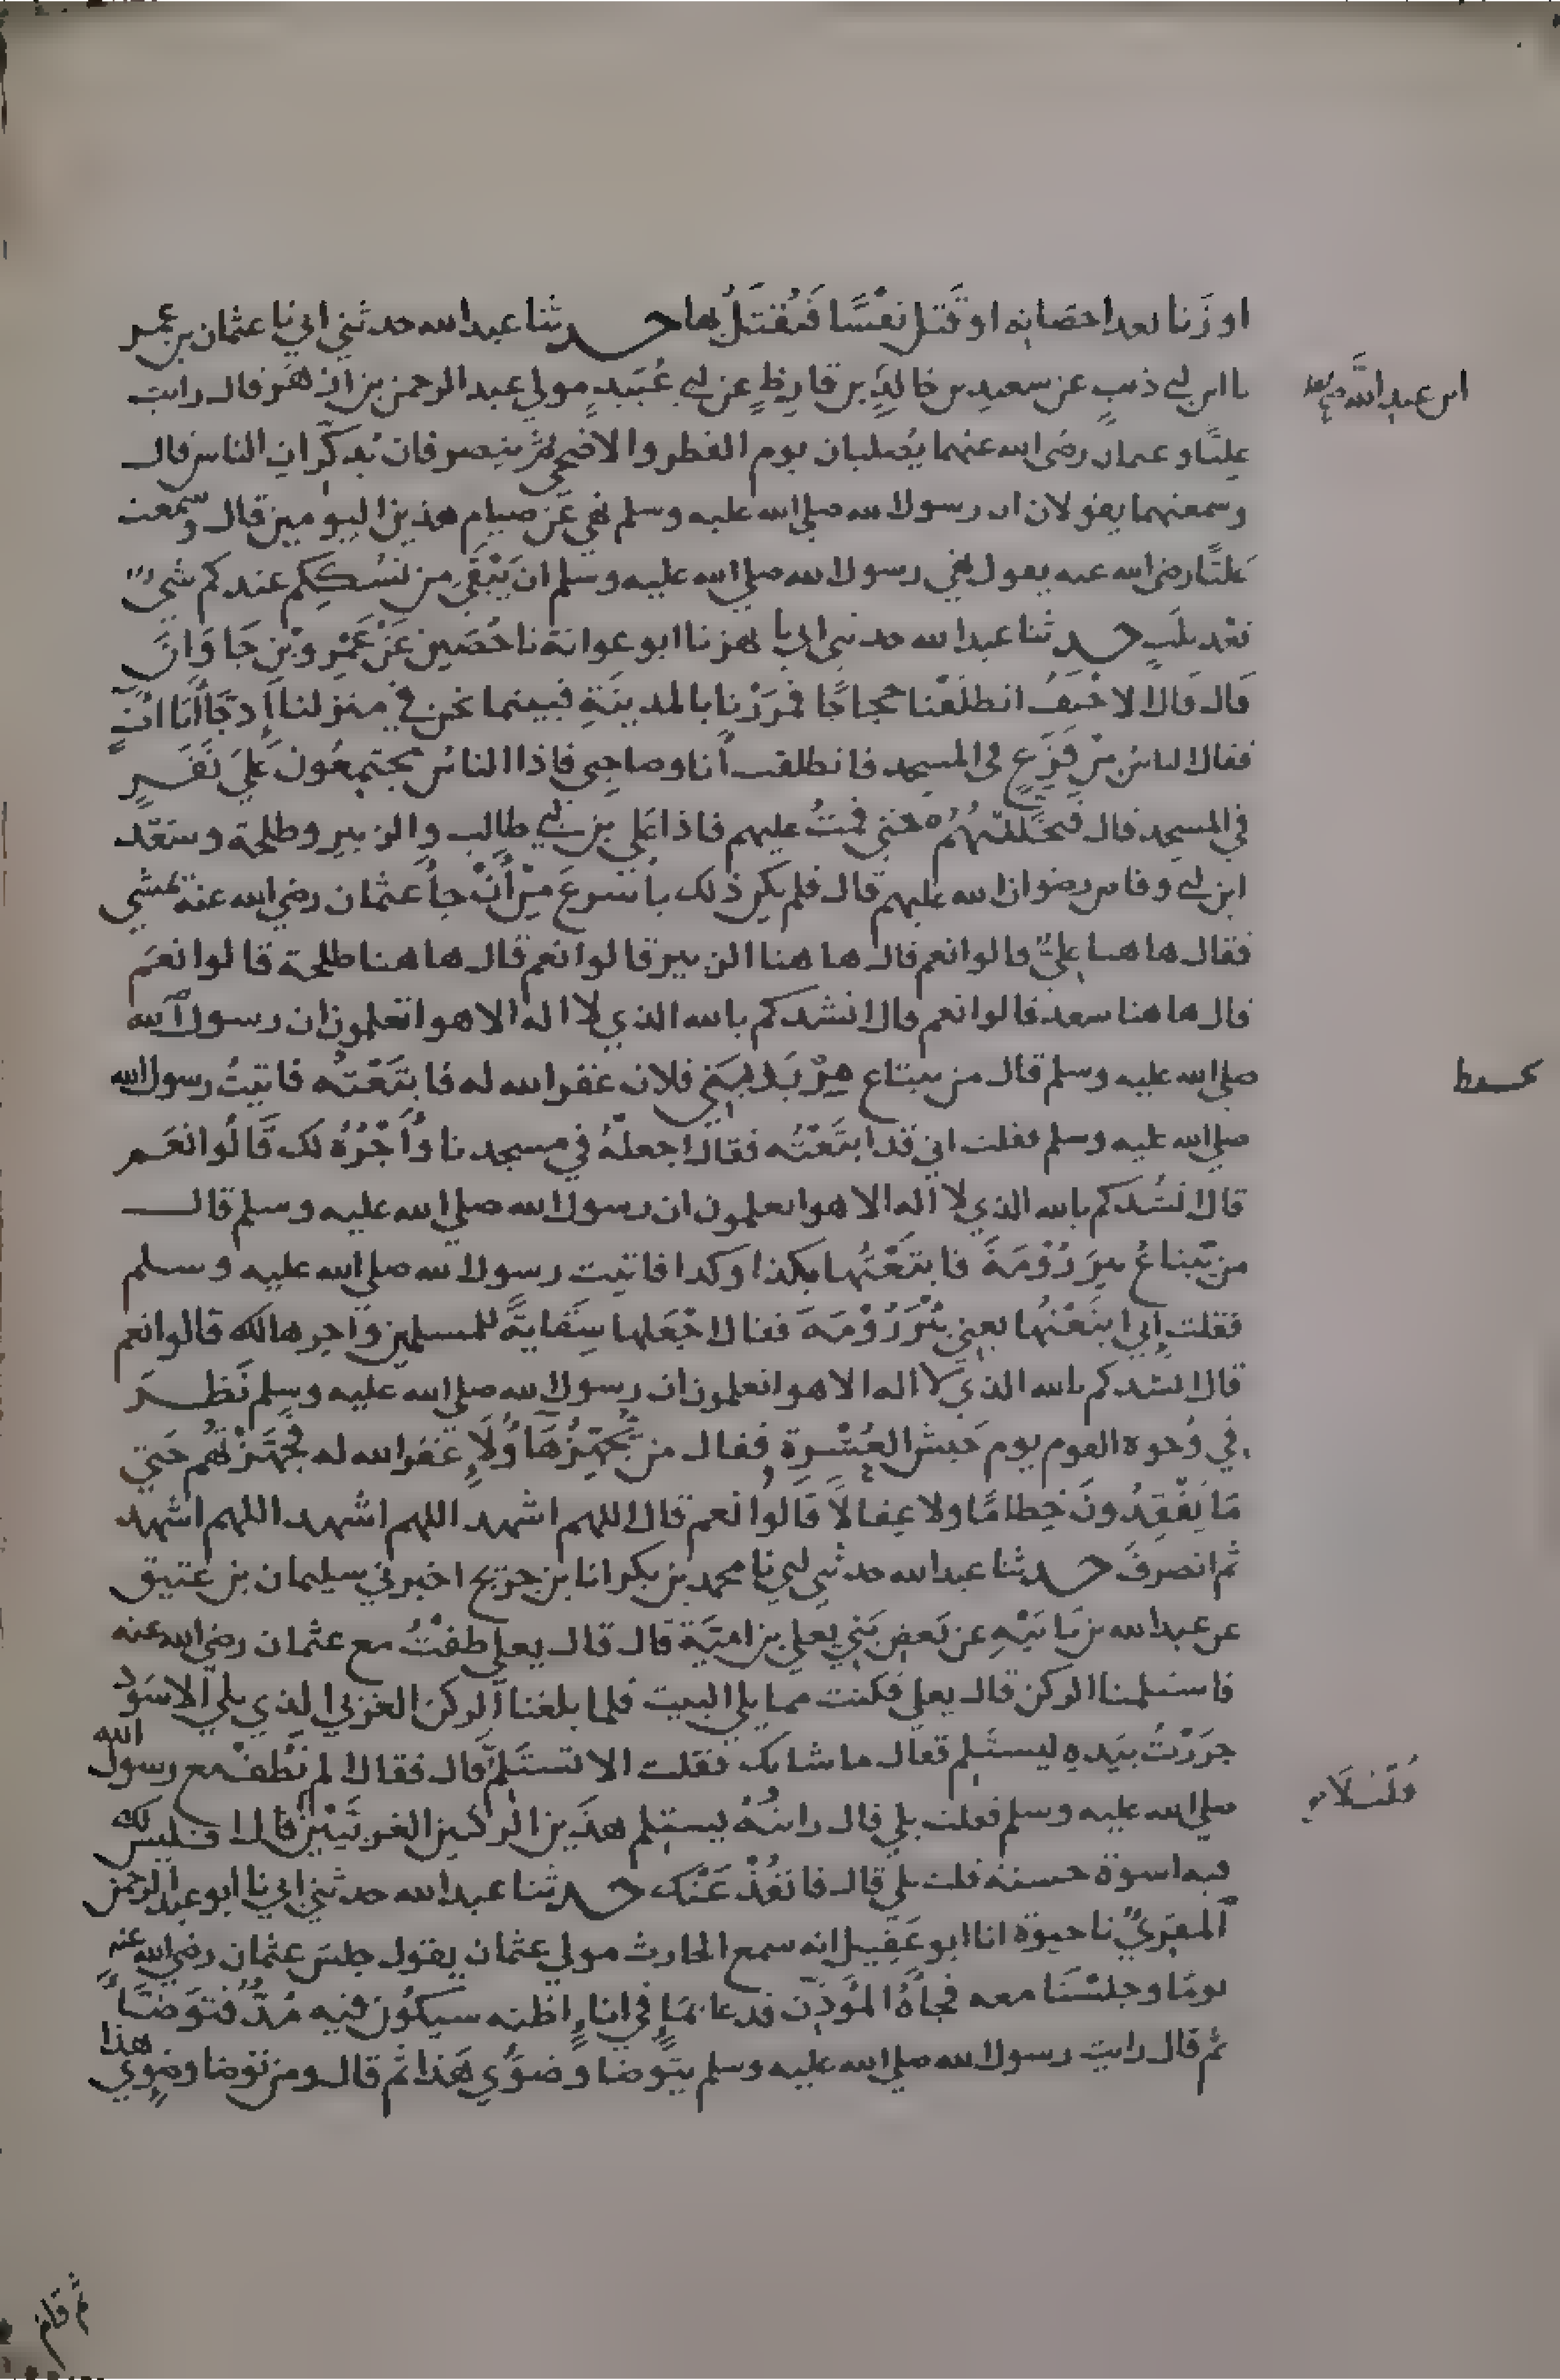 او زَنا بعد احصانه او قَتل نفسًا فَيُقتَلُ بها حدثنا عبد الله حدثني ابي نا عثمان بن عمر
نا ابن ابي ذيب عن سعيد بن خالدِ بن قارظٍ عن ابي عُبَيدٍ مولي عبد الرحمن بن ازهَر قال رايت
ابن عبد الله صح
عليًّا وعثمان رضي الله عنهما يُصليان يوم الفطر والاضحي ثم ينصرفان يُذكّران الناس قال
وسمعتهما يقولان ان رسول الله صلي الله عليه وسلم نهي عَن صيام هذين اليومين قال وسمعت
عليًّا رضي الله عنه يقول نهي رسول الله صلي الله عليه وسلم ان يَبْقَي من نُسُكِكم عندكم شيءٌ
بعْد ثلثٍ حدثنا عبد الله حدثني ابي نا بهز نا ابو عوانة نا حُصَين عَنْ عَمْرِو بْنِ جَاوَانَ
قال قال الاحْنَفُ انطلَقْنا حجاجًا فمَرَرْنا بالمدينَةِ فبينما نحن في منزلنا اِذ جَاأنَا اٰتٍ
فقال الناسُ مِنْ فَزَعٍ في المسجد فانطلقت أنا وصاحبي فاذا الناسُ مجتمِعُونَ عَلَي نَفَرٍ
في المسجد قال فتَخَللتُهُمْ حتي قمتُ عليهم فاذا عَلي بن ابي طالب والزبير وطلحة وسَعْد
ابن ابي وقاص رضوان الله عليهم قال فلم يكن ذلك باَسْرعَ مِنْ أَنْ جأ عثمان رضي الله عنه يمشي
فقال هاهنا عليٌّ قالوا نعم قال هاهنا الزبير قالوا نعم قال هاهنا طلحة قالوا نعَم
قال هاهنا سعد قالوا نعم قال انشدكم بالله الذي لا اله الا هو اتعلمون ان رسول الله
صلي الله عليه وسلم قال من يبتاع مِرْبَدَ بَني فلان غفر الله له فابتَعْتُه فاتيتُ رسول الله
صلي الله عليه وسلم فقلت اني قد ابتَعْتُه فقال اجعلهُ في مسجدنا وَاَجْرُهُ لك قَالُوا نعَم
قال انشُدكم بالله الذي لا اله الا هو اتعلمون ان رسول الله صلي الله عليه وسلم قال
من يَبتاعُ بيرَ رُوْمَةَ فابتَعْتُها بكذا وكذا فاتيت رسول الله صلي الله عليه وسلم
فقلت اِني ابتَعْتُها يعني بِئْرَ رُوْمَةَ فقال اجْعَلها سِقايةً للمسلمين واجرها لك قالوا نعم
قال انشدكم بالله الذي لا اله الا هو اتعلمون ان رسول الله صلي الله عليه وسلم نَظَرَ
في وُجوه القوم يوم جَيش العُسْرة فقال من يُجهّزُ هَاؤُلَاءِ غفر الله له فجَهَّزْتُهُم حَتي
مَا يَفْقِدُونَ خِطامًا ولا عِقالًا قَالوا نعم قال اللهم اشهد اللهم اشهد اللهم اشهد
ثم انصرفَ حدثنا عبد الله حدثني ابي نا محمد بن بكر انا بن جريج اخبرني سليمان بن عتيق
عن عبد الله بن بَابَيْهِ عن بَعض بَني يَعلي بن اميَّة قال قال يعلي طفْتُ مع عثمان رضي الله عنه
فاستلمنا الركن قال يعلي فكنت مما يلي البيت فلما بلغنا الركن الغربي الذي يلي الاسوَد
جرَرْتُ بيَدِهِ ليستَلِم فقال ما شانك فقلت الا تستَلِمُ قال فقال الم تَطُفْ مع رسول الله
صلي الله عليه وسلم فقلت بلي قال رايتُهُ يستلم هذَين الركنين الغربَيَّيْن قال فليس لك
قلتُ لا
فيه اسوة حسنة قلت بلي قال فانفُذْ عَنْك حدثنا عبد الله حدثني ابي نا ابو عبد الرحمن
المقرِيُ نا حيوة انا ابو عَقِيل انه سمع الحارث مولي عثمان يقول جلسَ عثمان رضي الله عنه
يومًا وجلسْنَا معه فجأهُ المُؤَذِن فدعا بمَاءٍ في اناءٍ اظنه سيكُون فيه مُدٌّ فتَوَضّأ
ثم قال رايت رسول الله صلي الله عليه وسلم يتَوضا وضوُءي هَذا ثم قال ومن توضا وضوءي هذا
ثم قام